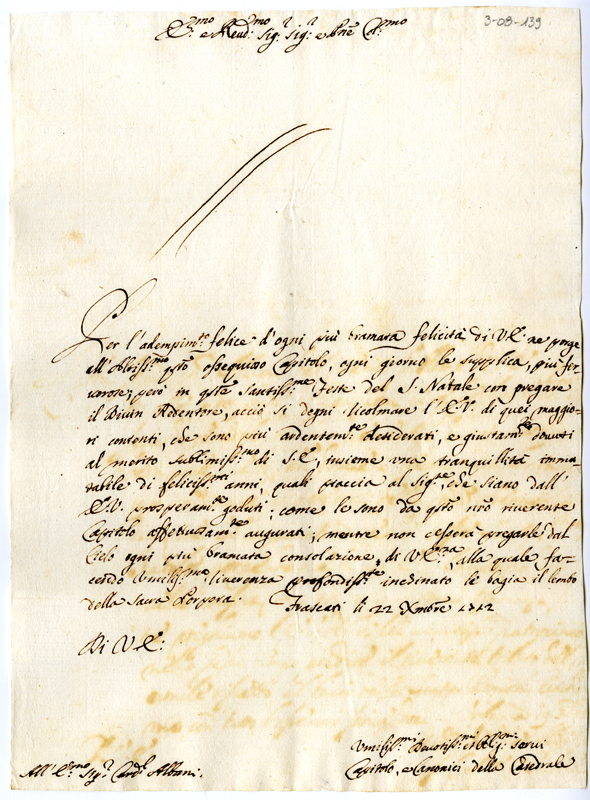 3-08-139
E.mo e Reud.mo Sig.r Sig.r e Pñe C.mo
Per l'adempim.to felice d'ogni più bramata felicità di V.E. ne porge
all'Altiss.mo q̃sto ossequioso Capitolo, ogni giorno le supplica, più fer-
uorose; però in q̃ste Santiss.me Feste del S. Natale con pregare
il Diuin Redentore, acciò si degni ricolmare l'E.V. di quei maggio-
ri contenti, che sono più ardentem.te desiderati, e giustam.te douuti
al merito sublimiss.mo di S.E., insieme vna tranquillità immu-
tabile di feliciss.mi anni, quali piaccia al Sig.re, che siano dall'
E.V. prosperam.te goduti; come le sono da q̃sto nr̃o riuerente
Capitolo affettuosam.te augurati; mentre non cesserà pregarle dal
Cielo ogni più bramata consolazione, di V.E.nza, alla quale fa-
cendo Vmiliss.ma riuerenza profondiss.te inchinato le bagia il lembo
della Sacra Porpora. Frascati li 22 Xmbre 1712
Di V.E:
Vmiliss.mi Deuotiss.mi et Oblig.mi Serui
All'E.mo Sig.r Card.l Albani. Capitolo, e Canonici della Catedrale